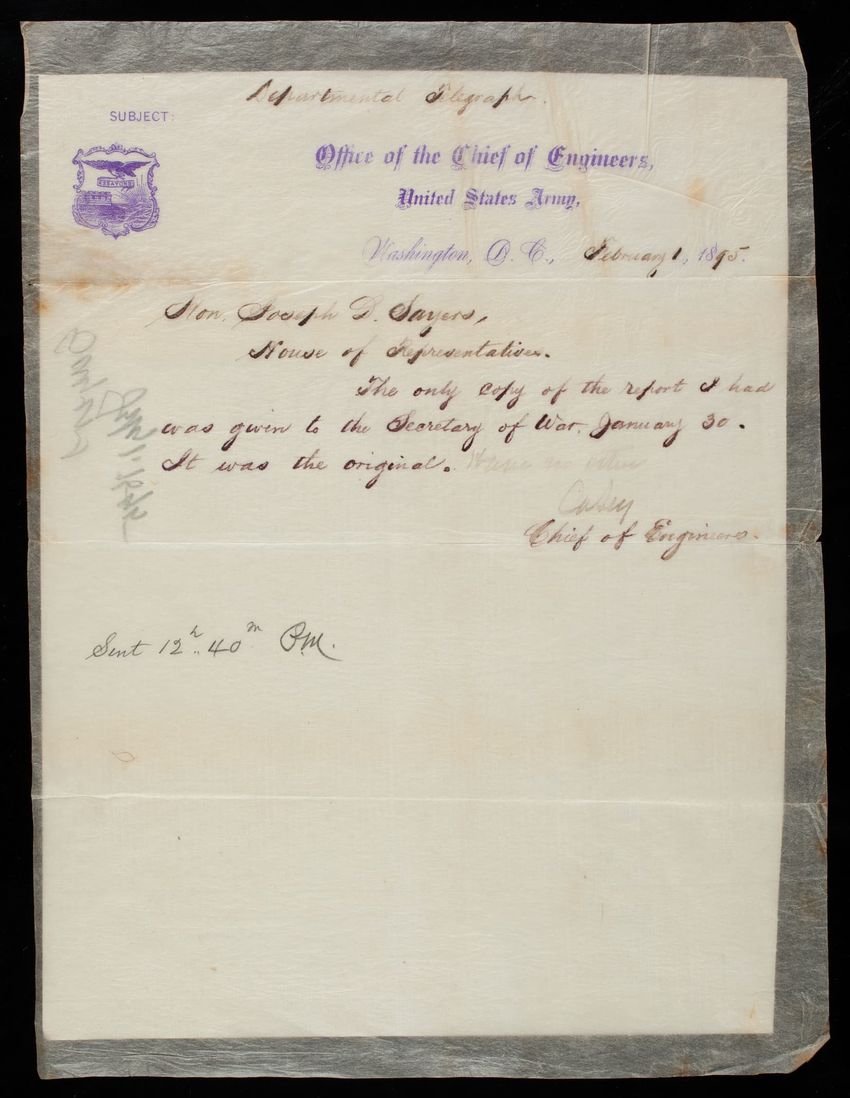 Departmental Telegraph.
SUBJECT:
Office of the Chief of Engineers,
United States Army,
Washington, D. C., February 1, 1895.
Hon. Joseph D. Sayers,
House of Representatives.
The only copy of the report I had
was given to the Secretary of War, January 30.
It was the original. Have no other
Casey
Chief of Engineers.
Sent 12h. 40m P.M.